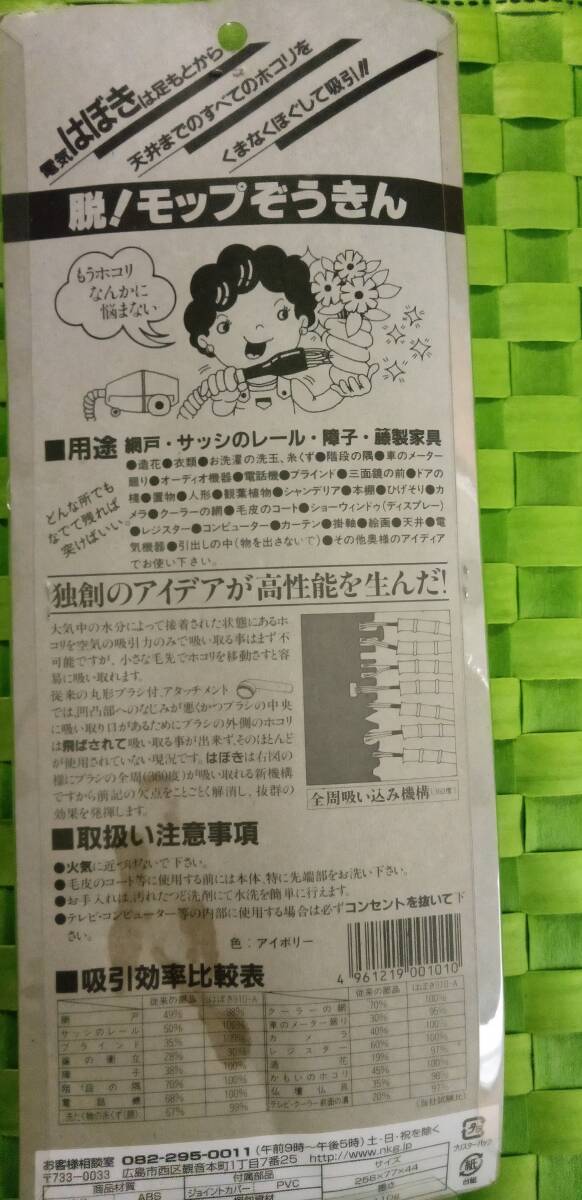 電気はぼきは足もとから
天井までのすべてのホコリを
くまなくほぐして吸引!!
脱!モップぞうきん
もうホコリ
なんかに
悩まない
■用途 網戸・サッシのレール・障子・藤製家具
どんな所でも
なでて残れば
突けばいい。
●造花●衣類●お洗濯の洗玉、糸くず●階段の隅●車のメーター
廻り●オーディオ機器●電話機●ブラインド●三面鏡の前●ドアの
棧●置物●人形●観葉植物●シャンデリア●本棚●ひげそり●カ
メラ●クーラーの網●毛皮のコート●ショーウィンドゥ(ディスプレー)
●レジスター●コンピューター●カーテン●掛軸●絵画●天井●電
気機器●引出しの中(物を出さないで)●その他奥様のアイディア
でお使い下さい。
独創のアイデアが高性能を生んだ!
大気中の水分によって接着された状態にあるホ
コリを空気の吸引力のみで吸い取る事はまず不
可能ですが、小さな毛先でホコリを移動さすと容
易に吸い取れます。
従来の丸形ブラシ付、アタッチメント
では、凹凸部へのなじみが悪くかつブラシの中央
に吸い取り口があるためにブラシの外側のホコリ
は飛ばされて吸い取る事が出来ず、そのほとんど
が使用されていない現況です。はぼきは右図の
様にブラシの全周(360度)が吸い取れる新機構
ですから前記の欠点をことごとく解消し、抜群の
効果を発揮します。
全周吸い込み機構(360度)
■取扱い注意事項
●火気に近づけないで下さい。
●毛皮のコート等に使用する前には本体、特に先端部をお洗い下さい。
●お手入れは、汚れたつど洗剤にて水洗を簡単に行えます。
●テレビ・コンピューター等の内部に使用する場合は必ずコンセントを抜いて下
さい。
色：アイボリー
4 961219 001010
■吸引効率比較表
従来の部品 はぼき910-A
網戸 49% 98%
サッシのレール 50% 100%
ブラインド 35% 100%
28% 90%
障子 38% 100%
階段の隅 70% 100%
電話機 68% 100%
洗たく物の糸くず(顔) 57% 99%
従来の部品 はぼき910-A
クーラーの網 70% 100%
車のメーター廻り 30% 95%
カメラ 40% 100%
レジスター 60% 100%
造花 19% 97%
かもいのホコリ 45% 98%
仏壇仏具 35% 97%
テレビ・クーラー・前面の溝 20% 93%
(当社試験比)
お客様相談室 082-295-0011 (午前9時〜午後5時)土・日・祝を除く
〒733-0033 広島市西区観音本町1丁目7番25 http://www.nkg.co.jp
ブリスターパック
紙
台紙
商品材質 付属部品 サイズ
ABS ジョイントカバー PVC 258×77×44